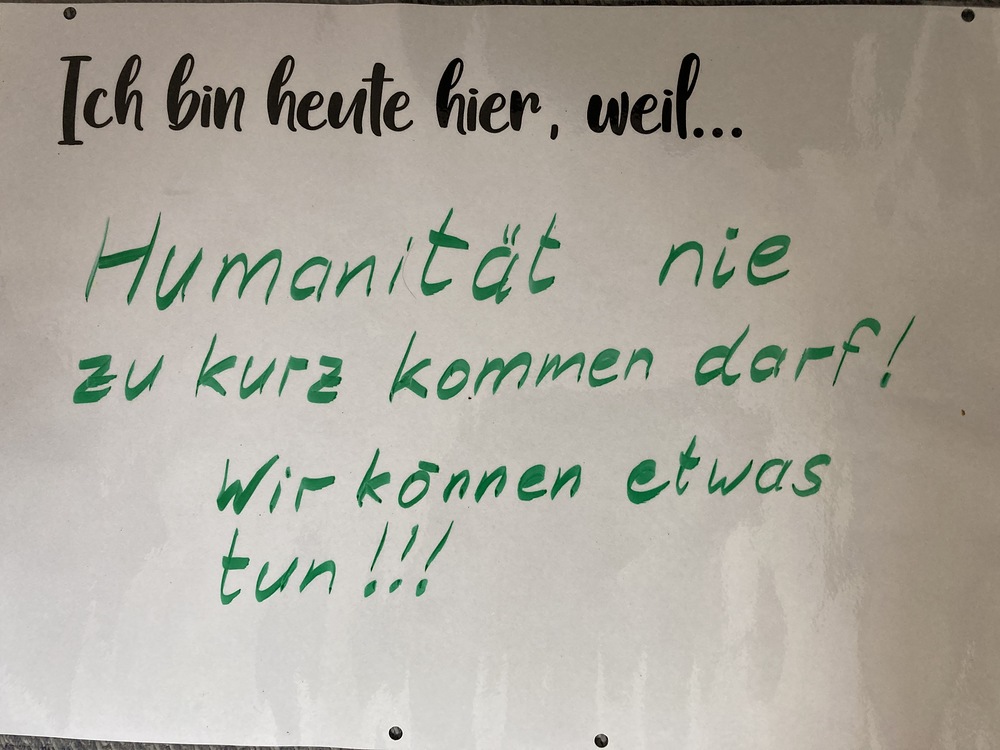 Ich bin heute hier, weil...
Humanität nie
zu kurz kommen darf!
Wir können etwas
tun!!!